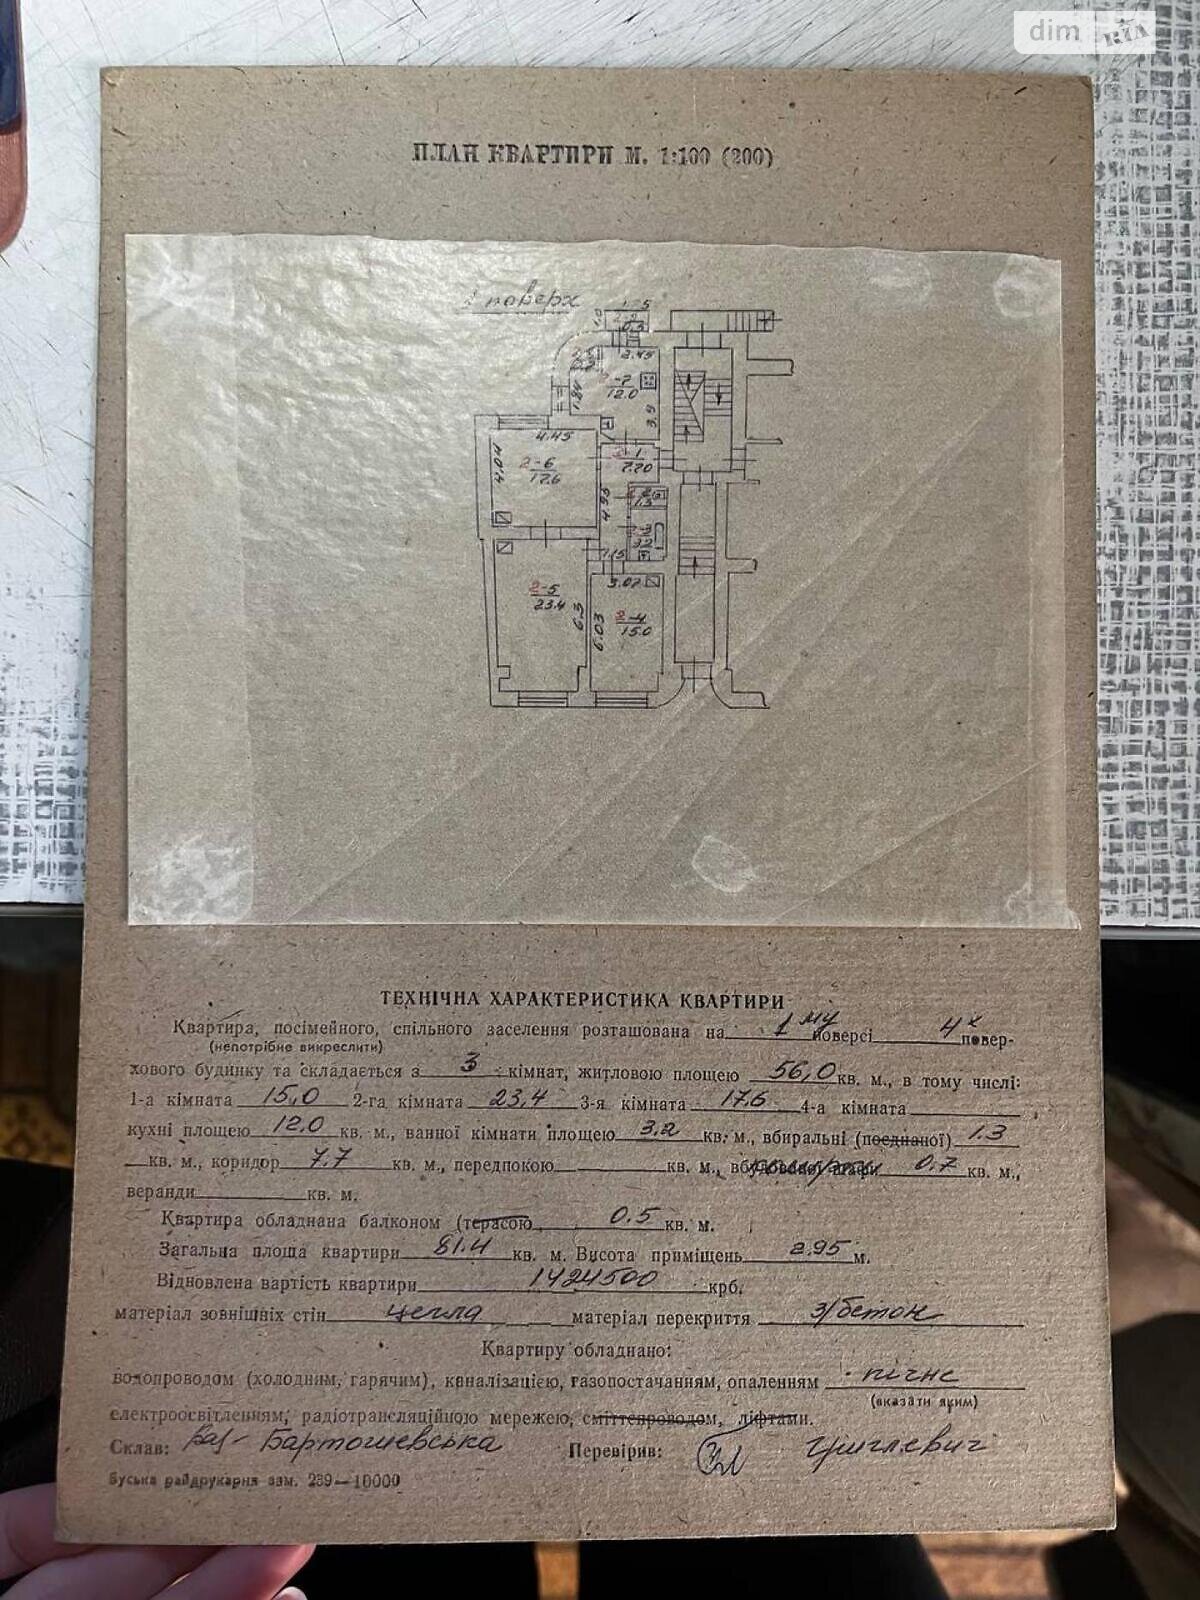 dim RIA
ПЛАН КВАРТИРИ М. 1:100 (200)
поверх
1.5
1.0
0.5
2.45
2-7
12.0
1.84
3.9
4.45
4.04
2-6
17.6
1
7.70
4.93
1.3
3.2
1.15
3.07
2-5
23.4
6.3
6.03
2-4
15.0
ТЕХНІЧНА ХАРАКТЕРИСТИКА КВАРТИРИ
Квартира, посімейного, спільного заселення розташована на 1му поверсі 4х повер-
(непотрібне викреслити)
хового будинку та складається з 3 кімнат, житловою площею 56,0 кв. м., в тому числі:
1-а кімната 15,0 2-га кімната 23,4 3-я кімната 17,6 4-а кімната
кухні площею 12.0 кв. м., ванної кімнати площею 3.2 кв. м., вбиральні (поєднаної) 1.3
кв. м., коридор 7.7 кв. м., передпокою кв. м., вбудованої шафи 0.7 кв. м.,
веранди кв. м.
Квартира обладнана балконом (терасою 0.5 кв. м.
Загальна площа квартири 81.4 кв. м. Висота приміщень 2.95 м.
Відновлена вартість квартири 1424500 крб.
матеріал зовнішніх стін цегла матеріал перекриття з/бетон
Квартиру обладнано:
водопроводом (холодним, гарячим), каналізацією, газопостачанням, опаленням пічне
(вказати яким)
електроосвітленням, радіотрансляційною мережею, сміттєпроводом, ліфтами.
Склав: Бартошевська Перевірив:
Буська райдрукарня зам. 239—10000